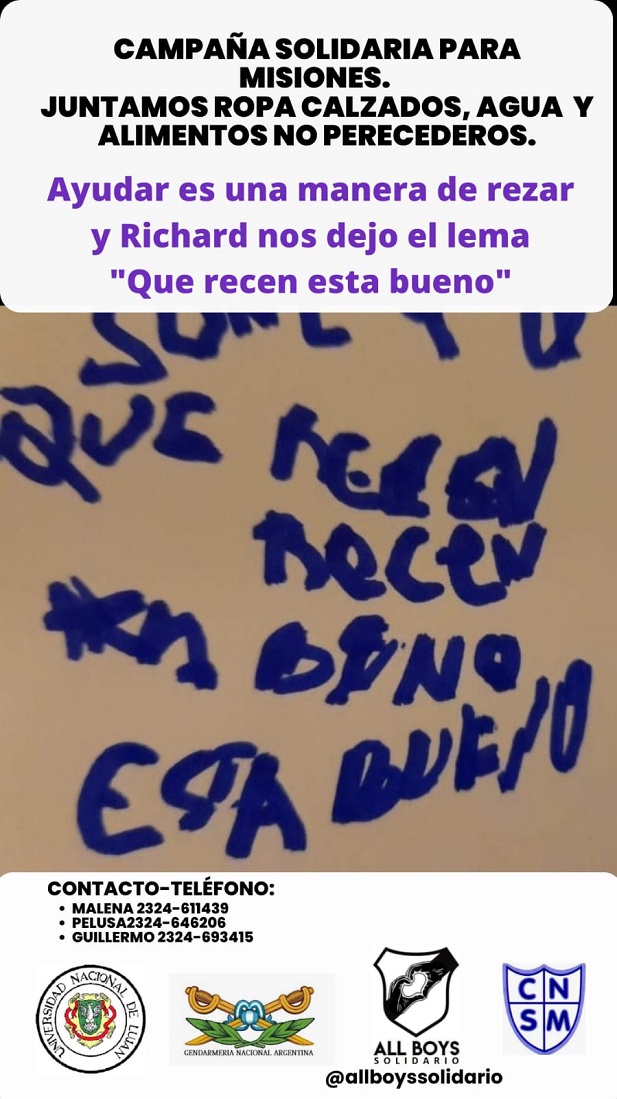 CAMPAÑA SOLIDARIA PARA
MISIONES.
JUNTAMOS ROPA CALZADOS, AGUA Y
ALIMENTOS NO PERECEDEROS.
Ayudar es una manera de rezar
y Richard nos dejo el lema
"Que recen esta bueno"
QUE RECEN
RECEN
BUNO
ESTA BUENO
CONTACTO-TELÉFONO:
• MALENA 2324-611439
• PELUSA2324-646206
• GUILLERMO 2324-693415
UNIVERSIDAD NACIONAL DE LUJAN
GENDARMERIA NACIONAL ARGENTINA
ALL BOYS
SOLIDARIO
C N
S M
@allboyssolidario